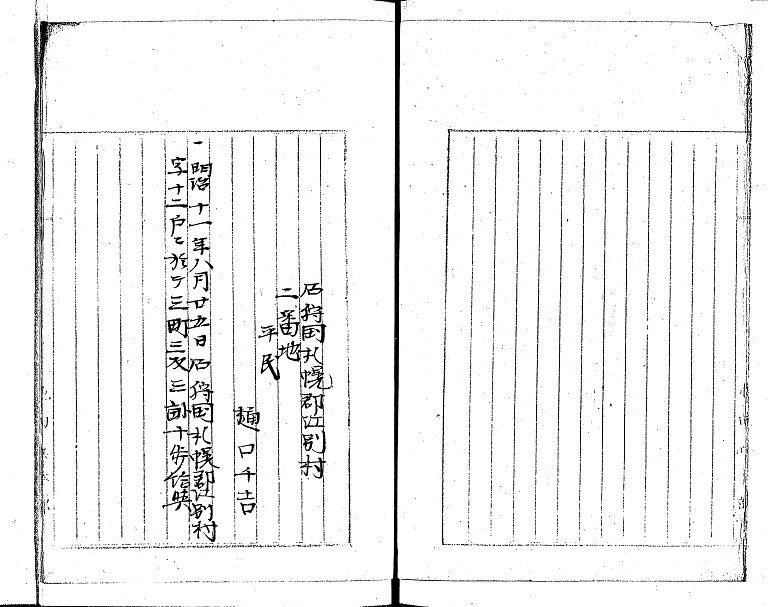 石狩国札幌郡江別村
二番地
平民
樋口千吉
一明治十一年八月廿五日石狩国札幌郡江別村
字十二戸ニ於テ三町三反三畝十歩